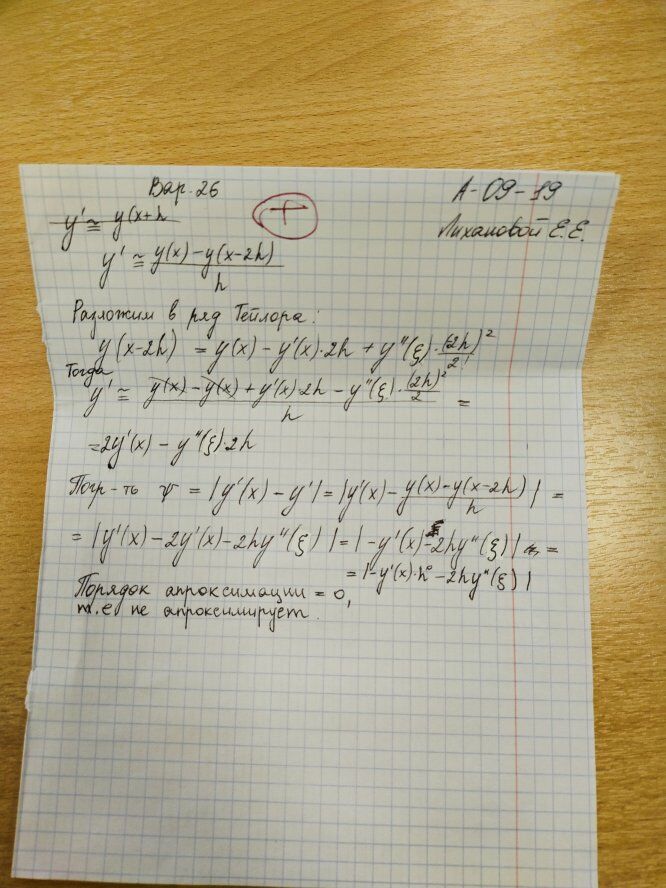 Вар. 26
А-09-19
y' ≅ y(x+h
Лихановой Е.Е.
y' ≅ y(x) - y(x-2h) / h
Разложим в ряд Тейлора:
y(x-2h) = y(x) - y'(x)·2h + y''(ξ)·(2h)²/2!
Тогда
y' ≅ y(x) - y(x) + y'(x)·2h - y''(ξ)·(2h)²/2 / h =
= 2y'(x) - y''(ξ)·2h
Погр-ть ψ = |y'(x) - y'| = |y'(x) - y(x)-y(x-2h) / h| =
= |y'(x) - 2y'(x) - 2hy''(ξ)| = |-y'(x) - 2hy''(ξ)| =
= |-y'(x)·h⁰ - 2hy''(ξ)|
Порядок апроксимации = 0,
т.е не апроксимирует.
+